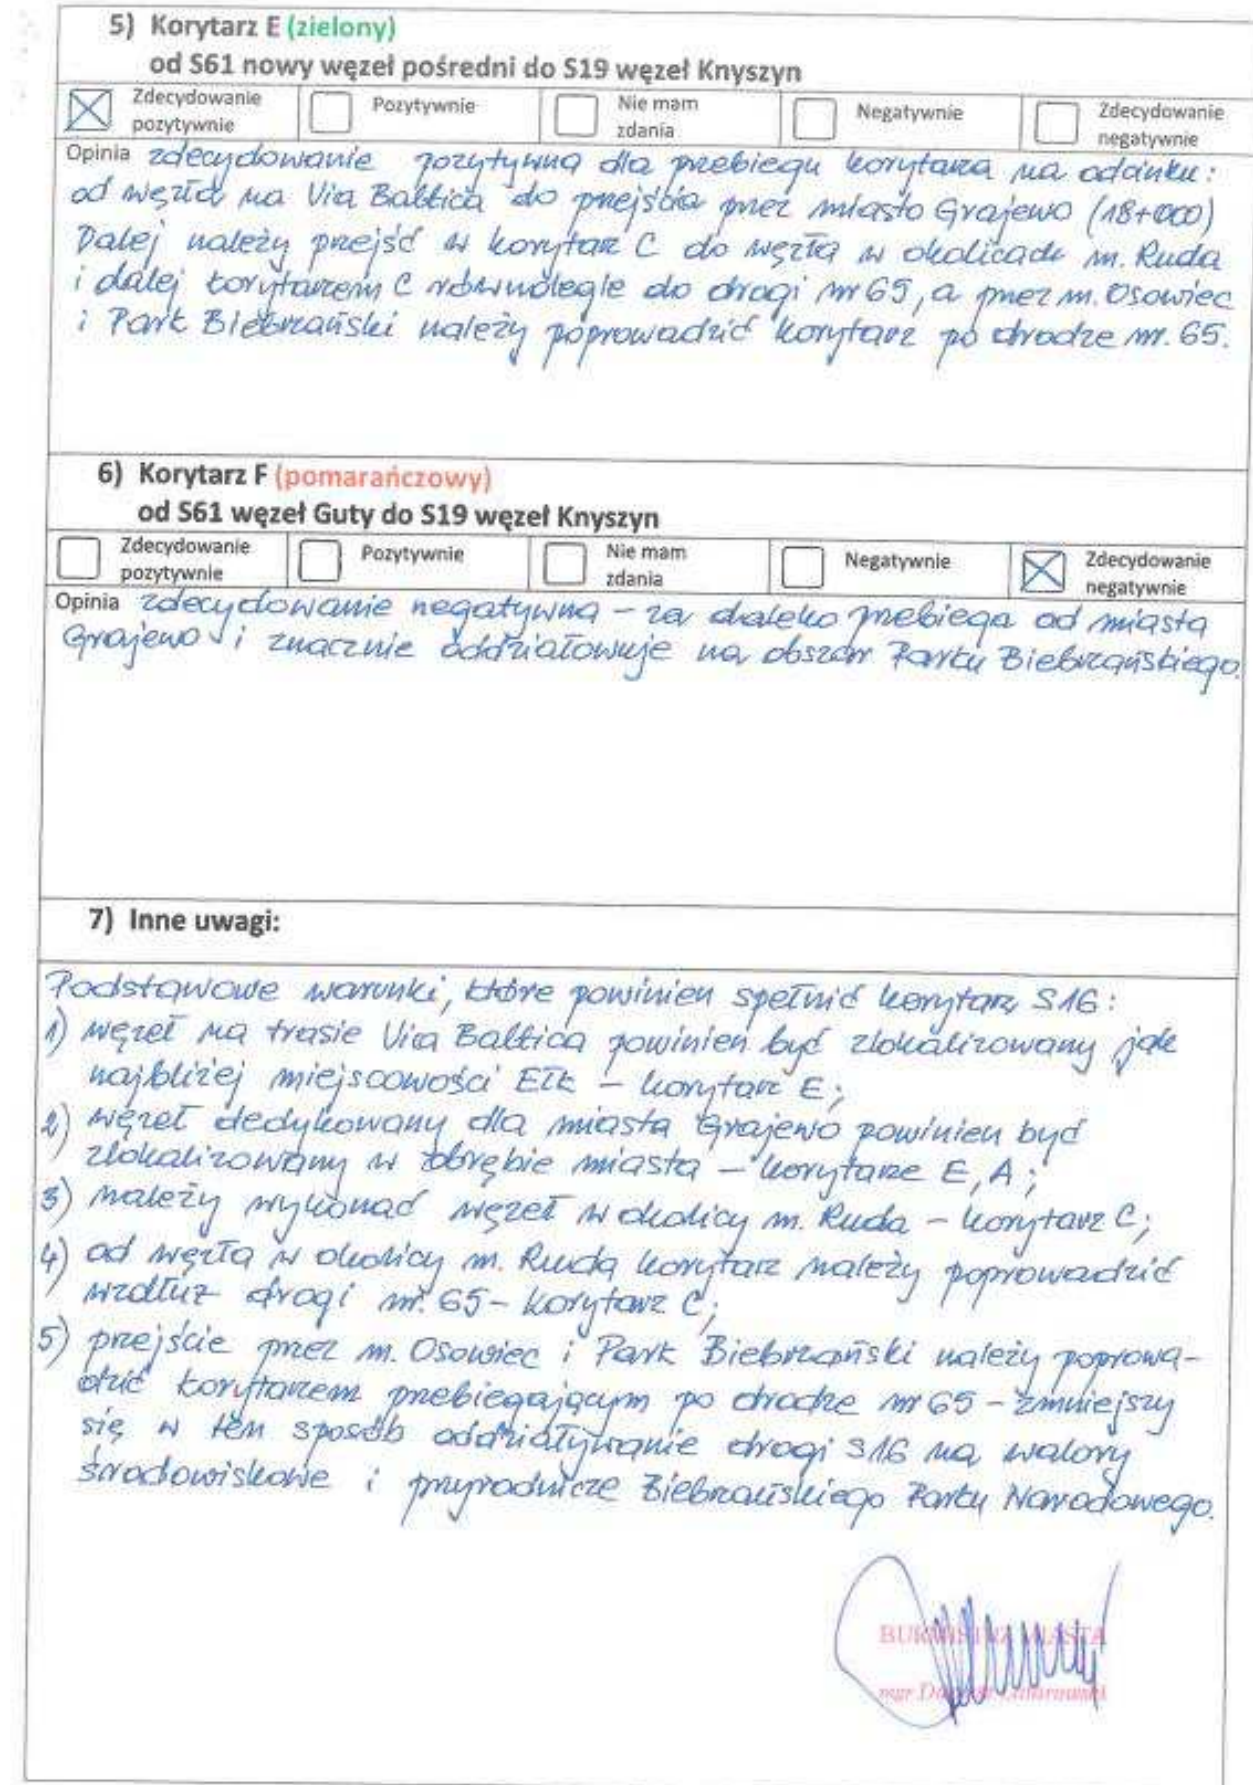 5) Korytarz E (zielony)
od S61 nowy węzeł pośredni do S19 węzeł Knyszyn
Zdecydowanie pozytywnie Pozytywnie Nie mam zdania Negatywnie Zdecydowanie negatywnie
Opinia zdecydowanie pozytywna dla przebiegu korytarza na odcinku:
od węzła na Via Baltica do przejścia przez miasto Grajewo (18+000)
Dalej należy przejść w korytarz C do węzła w okolicach m. Ruda
i dalej korytarzem C równolegle do drogi nr 65, a przez m. Osowiec
i Park Biebrzański należy poprowadzić korytarz po drodze nr. 65.
6) Korytarz F (pomarańczowy)
od S61 węzeł Guty do S19 węzeł Knyszyn
Zdecydowanie pozytywnie Pozytywnie Nie mam zdania Negatywnie Zdecydowanie negatywnie
Opinia zdecydowanie negatywna – za daleko przebiega od miasta
Grajewo i znacznie oddziaływuje na obszar Parku Biebrzańskiego.
7) Inne uwagi:
Podstawowe warunki, które powinien spełnić korytarz S16:
1) węzeł na trasie Via Baltica powinien być zlokalizowany jak
najbliżej miejscowości Ełk – korytarz E;
2) węzeł dedykowany dla miasta Grajewo powinien być
zlokalizowany w obrębie miasta – korytarze E, A;
3) należy wykonać węzeł w okolicy m. Ruda – korytarz C;
4) od węzła w okolicy m. Ruda korytarz należy poprowadzić
wzdłuż drogi nr. 65 – korytarz C;
5) przejście przez m. Osowiec i Park Biebrzański należy poprowa-
dzić korytarzem przebiegającym po drodze nr 65 – zmniejszy
się w ten sposób oddziaływanie drogi S16 na walory
środowiskowe i przyrodnicze Biebrzańskiego Parku Narodowego.
BURMISTRZ MIASTA
mgr